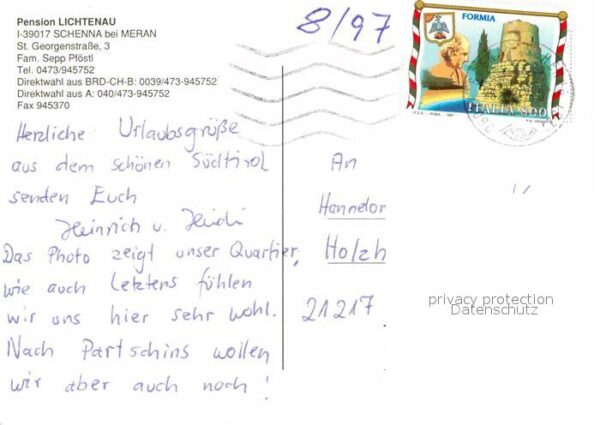 Pension LICHTENAU
I-39017 SCHENNA bei MERAN
St. Georgenstraße, 3
Fam. Sepp Pföstl
Tel. 0473/945752
Direktwahl aus BRD-CH-B: 0039/473-945752
Direktwahl aus A: 040/473-945752
Fax 945370
8/97
FORMIA
ITALIA 800
Herzliche Urlaubsgrüße
aus dem schönen Südtirol
senden Euch
Heinrich u. Heidi
Das Photo zeigt unser Quartier,
wie auch letztens fühlen
wir uns hier sehr wohl.
Nach Partschins wollen
wir aber auch noch!
An
Hannelor
Holzh
21217
privacy protection
Datenschutz